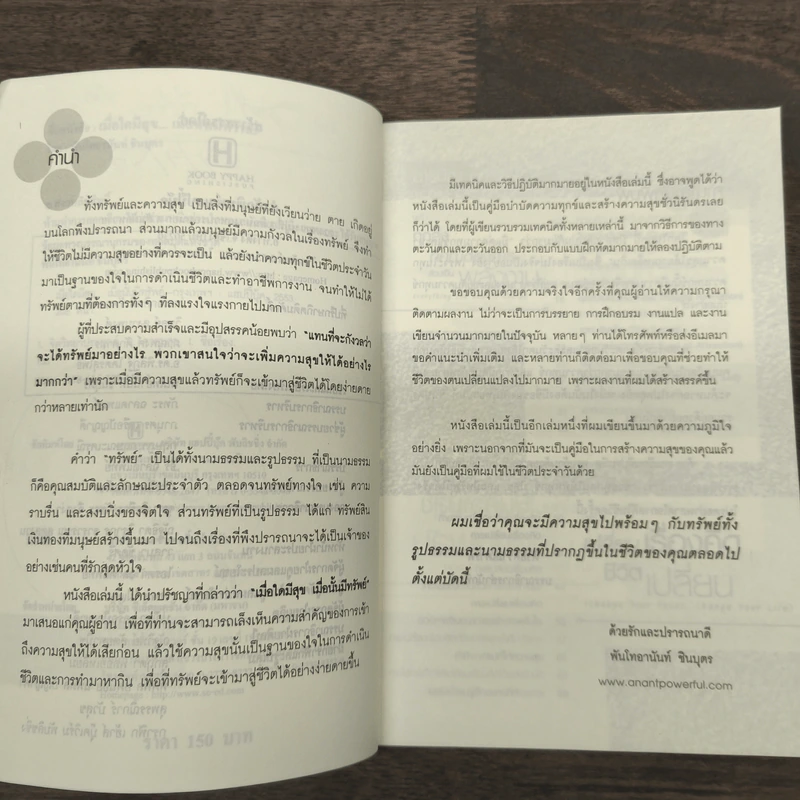 คำนำ
ทั้งทรัพย์และความสุข เป็นสิ่งที่มนุษย์ที่ยังเวียนว่าย ตาย เกิดอยู่
บนโลกพึงปรารถนา ส่วนมากแล้วมนุษย์มีความกังวลในเรื่องทรัพย์ จึงทำ
ให้ชีวิตไม่มีความสุขอย่างที่ควรจะเป็น แล้วยังนำความทุกข์ในชีวิตประจำวัน
มาเป็นฐานของใจในการดำเนินชีวิตและทำอาชีพการงาน จนทำให้ไม่ได้
ทรัพย์ตามที่ต้องการทั้งๆ ที่ลงแรงใจแรงกายไปมาก
ผู้ที่ประสบความสำเร็จและมีอุปสรรคน้อยพบว่า "แทนที่จะกังวลว่า
จะได้ทรัพย์มาอย่างไร พวกเขาสนใจว่าจะเพิ่มความสุขให้ได้อย่างไร
มากกว่า" เพราะเมื่อมีความสุขแล้วทรัพย์ก็จะเข้ามาสู่ชีวิตได้โดยง่ายดาย
กว่าหลายเท่านัก
คำว่า "ทรัพย์" เป็นได้ทั้งนามธรรมและรูปธรรม ที่เป็นนามธรรม
ก็คือคุณสมบัติและลักษณะประจำตัว ตลอดจนทรัพย์ทางใจ เช่น ความ
ราบรื่น และสงบนิ่งของจิตใจ ส่วนทรัพย์ที่เป็นรูปธรรม ได้แก่ ทรัพย์สิน
เงินทองที่มนุษย์สร้างขึ้นมา ไปจนถึงเรื่องที่พึงปรารถนาจะได้เป็นเจ้าของ
อย่างเช่นคนที่รักสุดหัวใจ
หนังสือเล่มนี้ ได้นำปรัชญาที่กล่าวว่า "เมื่อใดมีสุข เมื่อนั้นมีทรัพย์"
มาเสนอแก่คุณผู้อ่าน เพื่อที่ท่านจะสามารถเล็งเห็นความสำคัญของการเข้า
ถึงความสุขให้ได้เสียก่อน แล้วใช้ความสุขนั้นเป็นฐานของใจในการดำเนิน
ชีวิตและการทำมาหากิน เพื่อที่ทรัพย์จะเข้ามาสู่ชีวิตได้อย่างง่ายดายขึ้น
ราคา 150 บาท
มีเทคนิคและวิธีปฏิบัติมากมายอยู่ในหนังสือเล่มนี้ ซึ่งอาจพูดได้ว่า
หนังสือเล่มนี้เป็นคู่มือบำบัดความทุกข์และสร้างความสุขชั่วนิรันดรเลย
ก็ว่าได้ โดยที่ผู้เขียนรวบรวมเทคนิคทั้งหลายเหล่านี้ มาจากวิธีการของทาง
ตะวันตกและตะวันออก ประกอบกับแบบฝึกหัดมากมายให้ลองปฏิบัติตาม
ขอขอบคุณด้วยความจริงใจอีกครั้งที่คุณผู้อ่านให้ความกรุณา
ติดตามผลงาน ไม่ว่าจะเป็นการบรรยาย การฝึกอบรม งานแปล และงาน
เขียนจำนวนมากมายในปัจจุบัน หลายๆ ท่านได้โทรศัพท์หรือส่งอีเมลมา
ขอคำแนะนำเพิ่มเติม และหลายท่านก็ติดต่อมาเพื่อขอบคุณที่ช่วยทำให้
ชีวิตของตนเปลี่ยนแปลงไปมากมาย เพราะผลงานที่ผมได้สร้างสรรค์ขึ้น
หนังสือเล่มนี้เป็นอีกเล่มหนึ่งที่ผมเขียนขึ้นมาด้วยความภูมิใจ
อย่างยิ่ง เพราะนอกจากที่มันจะเป็นคู่มือในการสร้างความสุขของคุณแล้ว
มันยังเป็นคู่มือที่ผมใช้ในชีวิตประจำวันด้วย
ผมเชื่อว่าคุณจะมีความสุขไปพร้อมๆ กับทรัพย์ทั้ง
รูปธรรมและนามธรรมที่ปรากฏขึ้นในชีวิตของคุณตลอดไป
ตั้งแต่บัดนี้
ด้วยรักและปรารถนาดี
พันโทอานันท์ ชินบุตร
www.anantpowerful.com